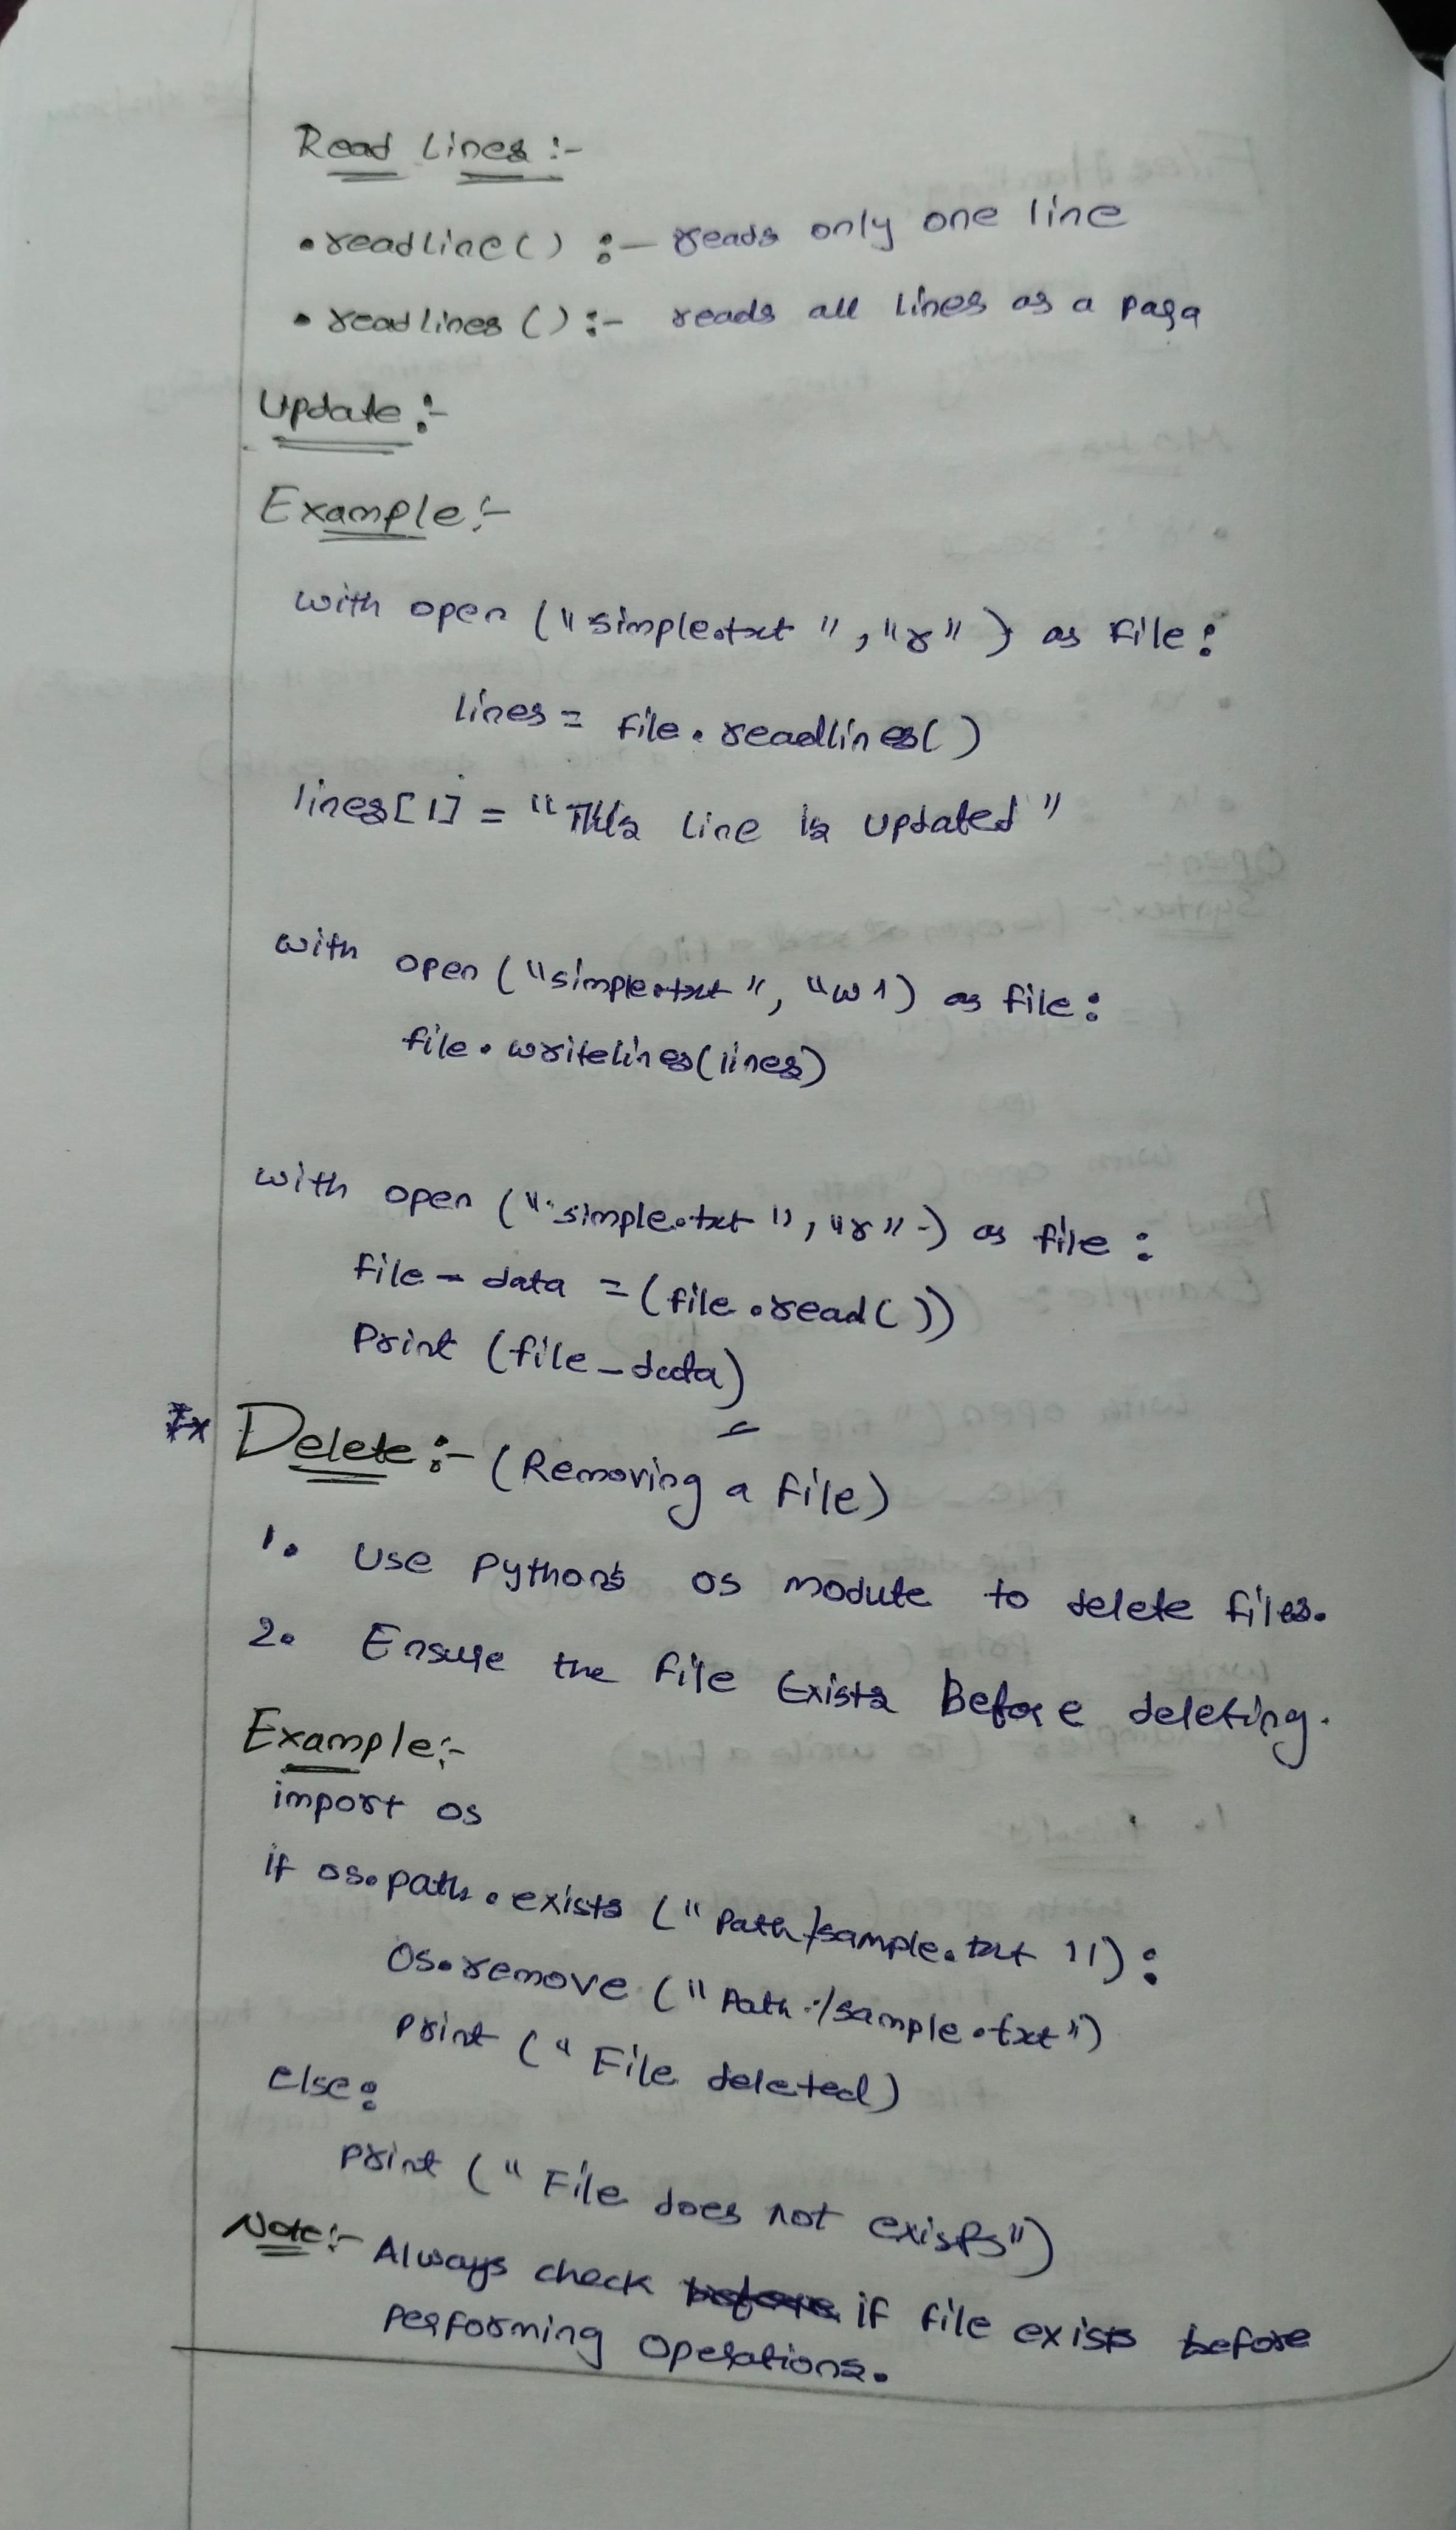 Read Lines :-
• readline() :- reads only one line
• readlines() :- reads all lines as a para
Update :-
Example :-
with open ("simple.txt", "r") as file:
lines = file.readlines()
lines[1] = "This line is updated"
with open ("simple.txt", "w1) as file:
file.writelines(lines)
with open ("simple.txt", "r") as file :
file_data = (file.read())
Print (file_data)
Delete :- (Removing a file)
1. Use Python's os module to delete files.
2. Ensure the file Exists Before deleting.
Example :-
import os
if os.path.exists ("Path/sample.txt"):
os.remove ("Path:/sample.txt")
print ("File deleted)
else:
print ("File does not exists")
Note :- Always check if file exists before
Performing Operations.